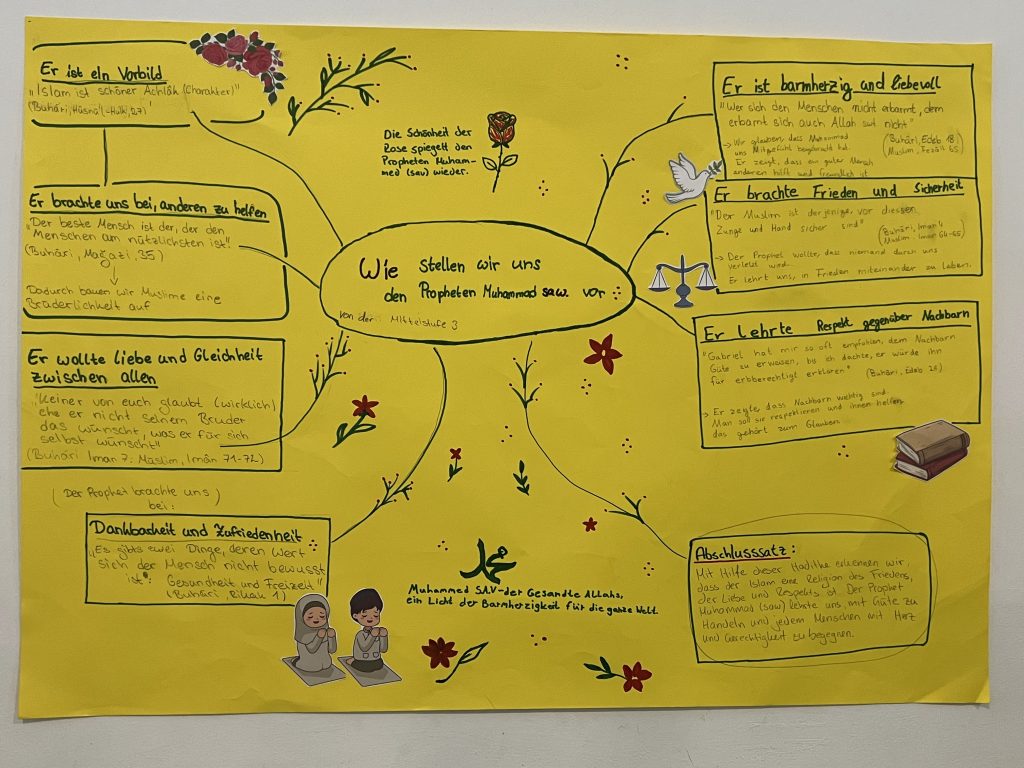 Er ist ein Vorbild
„Islam ist schöner Achlâk (Charakter)"
(Buhâri, Hüsnü'l-Hulk, 27)
Er brachte uns bei, anderen zu helfen
„Der beste Mensch ist der, der den
Menschen am nützlichsten ist"
(Buhâri, Mağazi, 35)
↓
Dadurch bauen wir Muslime eine
Brüderlichkeit auf
Er wollte Liebe und Gleichheit
zwischen allen
„Keiner von euch glaubt (wirklich)
ehe er nicht seinem Bruder
das wünscht, was er für sich
selbst wünscht"
(Buhâri Iman 7. Müslim, Imân 71-72)
(Der Prophet brachte uns)
bei:
Dankbarkeit und Zufriedenheit
„Es gibts zwei Dinge, deren Wert
sich der Mensch nicht bewusst
ist: Gesundheit und Freizeit"
(Buhâri, Rikak 1)
Die Schönheit der
Rose spiegelt den
Propheten Muham-
med (sav) wieder.
Wie stellen wir uns
den Propheten Muhammad saw. vor
von der Mittelstufe 3
محمد
Muhammed S.A.V-der Gesandte Allahs,
ein Licht der Barmherzigkeit für die ganze Welt.
Er ist barmherzig und liebevoll
"Wer sich den Menschen nicht erbarmt, dem
erbarmt sich auch Allah swt nicht"
(Buhâri, Edeb 18;
Muslim, Fezâil 65)
→ Wir glauben, dass Muhammad
uns Mitgefühl beigebracht hat.
Er zeigt, dass ein guter Mensch
anderen hilft und freundlich ist
Er brachte Frieden und Sicherheit
"Der Muslim ist derjenige, vor dessen
Zunge und Hand sicher sind"
(Buhâri, Iman 4
Muslim - Iman 64-65)
→ Der Prophet wollte, dass niemand durch uns
verletzt wird.
Er lehrt uns, in Frieden miteinander zu leben.
Er lehrte Respekt gegenüber Nachbarn
"Gabriel hat mir so oft empfohlen, dem Nachbarn
Güte zu erweisen, bis ich dachte, er würde ihn
für erbberechtigt erklären" (Buhâri, Edeb 28)
→ Er zeigte, dass Nachbarn wichtig sind
Man soll sie respektieren und ihnen helfen,
das gehört zum Glauben
Abschlusssatz:
Mit Hilfe dieser Hadithe erkennen wir,
dass der Islam eine Religion des Friedens,
der Liebe und Respekts ist. Der Prophet
Muhammad (saw) lehrte uns, mit Güte zu
Handeln und jedem Menschen mit Herz
und Gerechtigkeit zu begegnen.